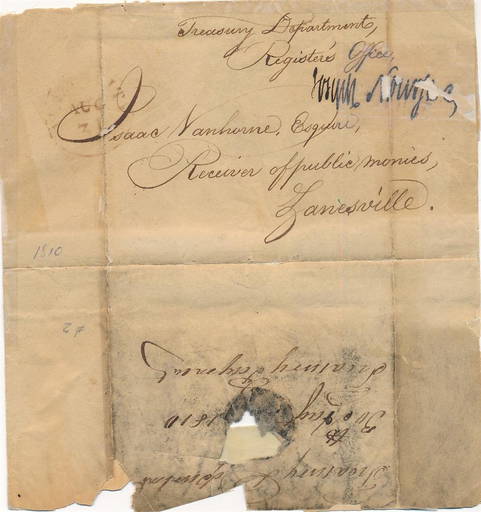 Treasury Department,
Register's Office,
Joseph Nourse
AUG
7
Isaac Vanhorne, Esquire,
Receiver of public monies,
Zanesville.
1810
#2
Treasury Department
30th Augt 1810
Treasury